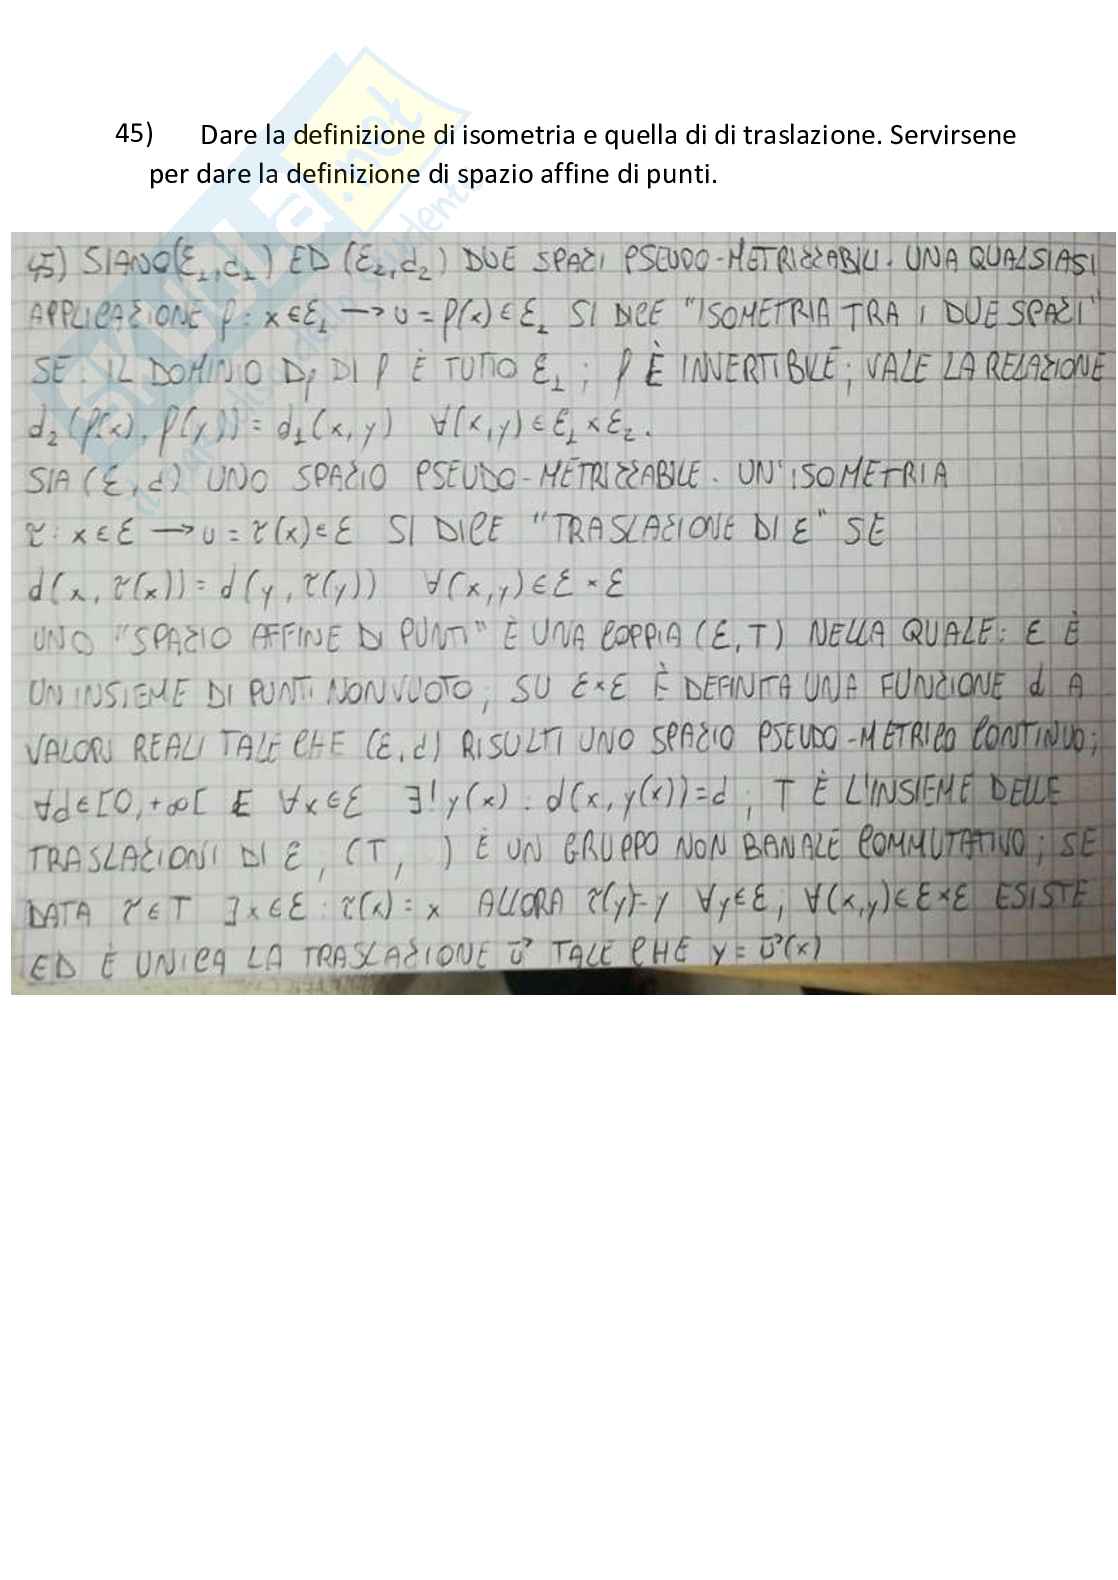 45) Dare la definizione di isometria e quella di di traslazione. Servirsene
per dare la definizione di spazio affine di punti.
45) SIANO (ℰ₁, d₁) ED (ℰ₂, d₂) DUE SPAZI PSEUDO-METRIZZABILI. UNA QUALSIASI
APPLICAZIONE f: x ∈ ℰ₁ → u = f(x) ∈ ℰ₂ SI DICE "ISOMETRIA TRA I DUE SPAZI"
SE: IL DOMINIO Df DI f È TUTTO ℰ₁; f È INVERTIBILE; VALE LA RELAZIONE
d₂(f(x), f(y)) = d₁(x, y) ∀(x, y) ∈ ℰ₁ × ℰ₂.
SIA (ℰ, d) UNO SPAZIO PSEUDO-METRIZZABILE. UN'ISOMETRIA
τ: x ∈ ℰ → u = τ(x) ∈ ℰ SI DICE "TRASLAZIONE DI ℰ" SE
d(x, τ(x)) = d(y, τ(y)) ∀(x, y) ∈ ℰ × ℰ
UNO "SPAZIO AFFINE DI PUNTI" È UNA COPPIA (ℰ, T) NELLA QUALE: ℰ È
UN INSIEME DI PUNTI NON VUOTO; SU ℰ×ℰ È DEFINITA UNA FUNZIONE d A
VALORI REALI TALE CHE (ℰ, d) RISULTI UNO SPAZIO PSEUDO-METRICO CONTINUO;
∀d ∈ [0, +∞[ E ∀x ∈ ℰ ∃! y(x) : d(x, y(x)) = d; T È L'INSIEME DELLE
TRASLAZIONI DI ℰ, (T, ) È UN GRUPPO NON BANALE COMMUTATIVO; SE
DATA τ ∈ T ∃ x ∈ ℰ : τ(x) = x ALLORA τ(y) = y ∀y ∈ ℰ; ∀(x, y) ∈ ℰ×ℰ ESISTE
ED È UNICA LA TRASLAZIONE v⃗ TALE CHE y = v⃗(x)
SKUOLA.net